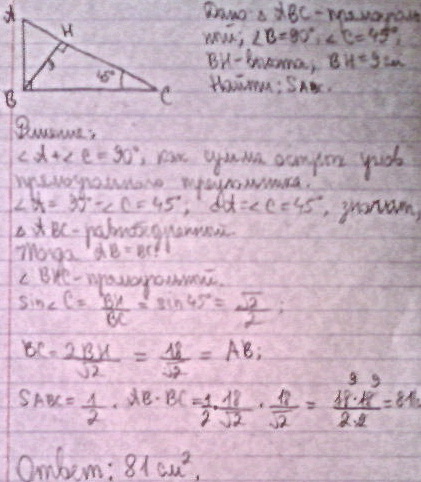 A
H
B
C
9
45°
Дано: Δ ABC - прямоуголь-
ный; ∠B=90°, ∠C=45°,
BH - высота, BH=9 см
Найти: SABC.
Решение:
∠A+∠C=90°, как сумма острых углов
прямоугольного треугольника.
∠A=90°-∠C=45°; ∠A=∠C=45°, значит,
Δ ABC - равнобедренный.
Тогда AB=BC.
∠ BHC - прямоугольный.
sin∠C = BH/BC = sin 45° = √2/2;
BC = 2BH/√2 = 18/√2 = AB;
SABC = 1/2 · AB · BC = 1/2 · 18/√2 · 18/√2 = 18·18/2·2 = 81
Ответ: 81 см².